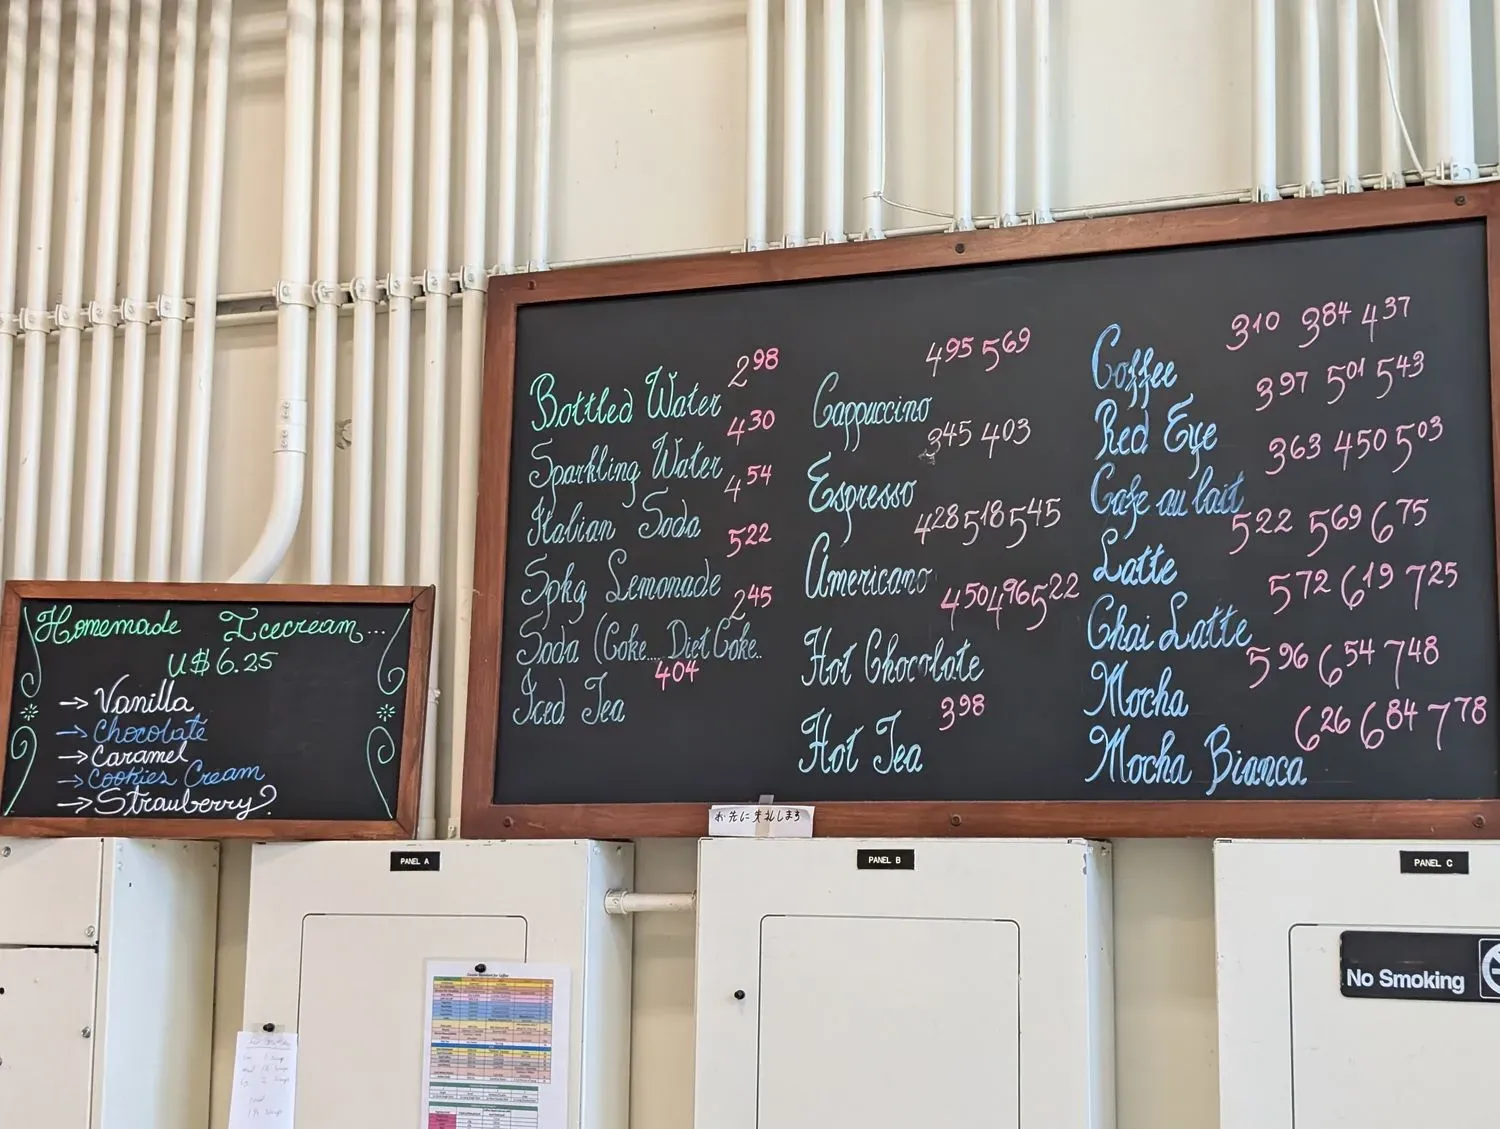 Homemade Icecream...
U$ 6.25
→ Vanilla
→ Chocolate
→ Caramel
→ Cookies Cream
→ Strawberry?
2 98
Bottled Water
4 30
Sparkling Water
4 54
Italian Soda
5 22
Spkg Lemonade
2 45
Soda (Coke... Diet Coke..
4 04
Iced Tea
4 95 5 69
Cappuccino
3 45 4 03
Espresso
4 28 5 18 5 45
Americano
4 50 4 96 5 22
Hot Chocolate
3 98
Hot Tea
3 10 3 84 4 37
Coffee
3 97 5 01 5 43
Red Eye
3 63 4 50 5 03
Cafe au lait
5 22 5 69 6 75
Latte
5 72 6 19 7 25
Chai Latte
5 96 6 54 7 48
Mocha
6 26 6 84 7 78
Mocha Bianca
お先に失礼しまち
PANEL A
PANEL B
PANEL C
No Smoking